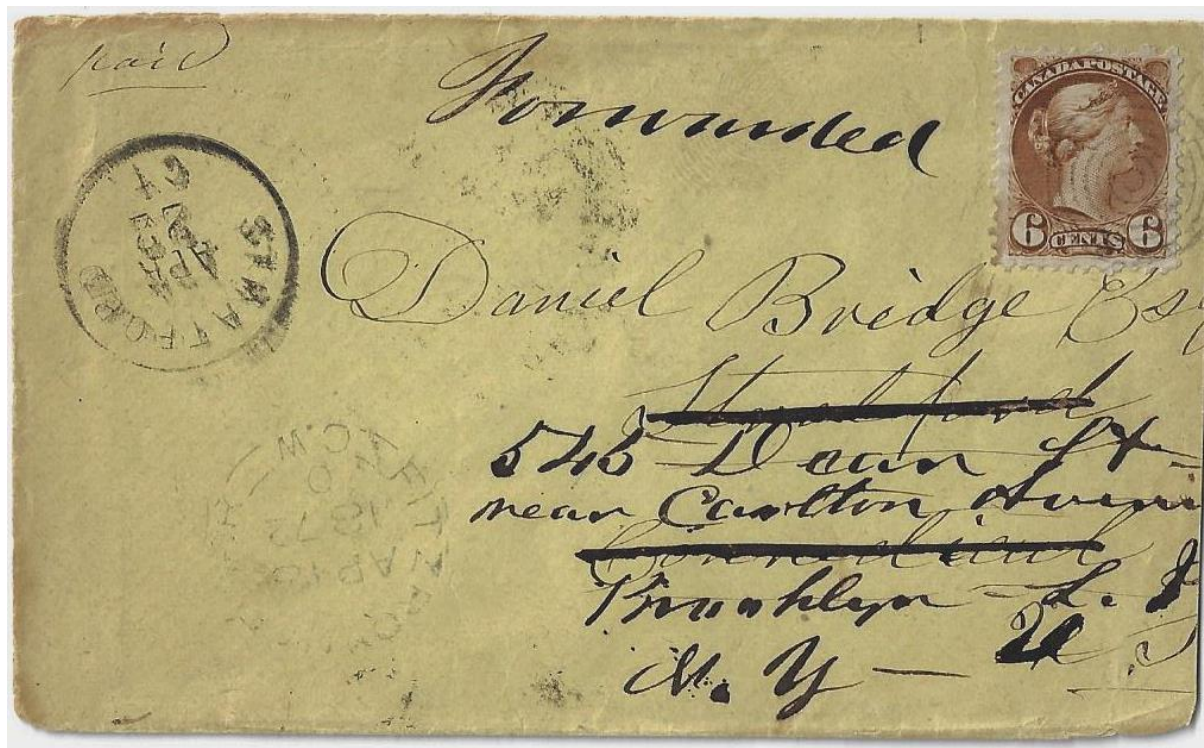 paid
Forwarded
CANADA POSTAGE
6 CENTS 6
STRATFORD
APR
23
CT
Daniel Bridge Esq
Stratford
543 Dean St
near Carlton Aven
Connecticut
Brooklyn L.
N. Y — U.S
1873